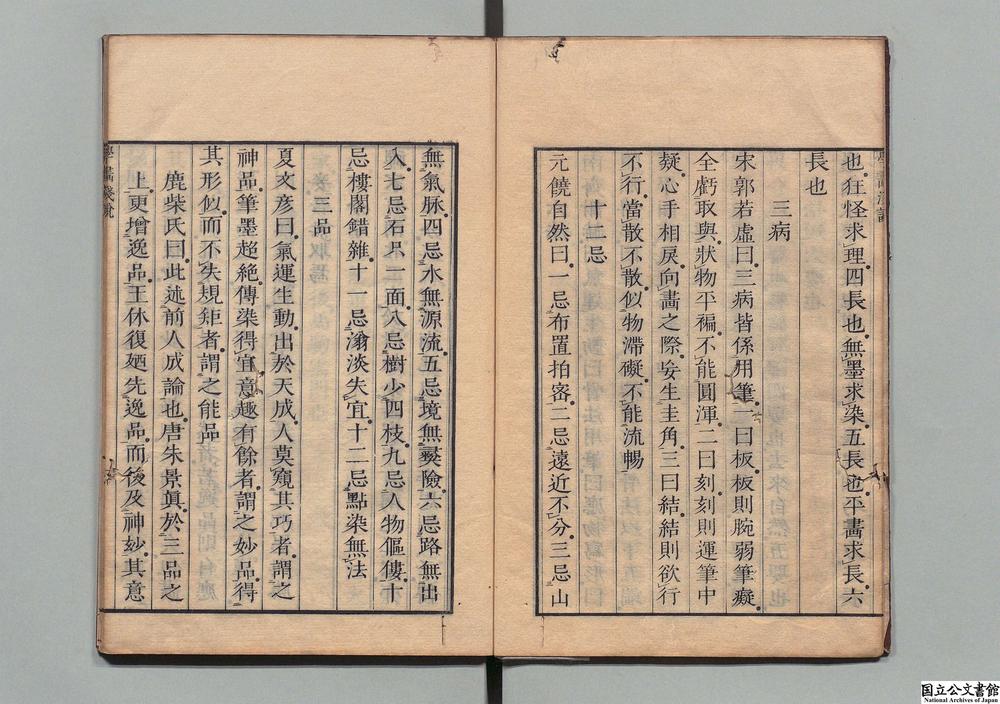 也狂怪求理四長也無墨求染五長也平畫求長六
長也
三病
宋郭若虛曰三病皆係用筆一曰板板則腕弱筆癡
全虧取與狀物平褊不能圓渾二曰刻刻則運筆中
疑心手相戾向畫之際妄生圭角三曰結結則欲行
不行當散不散似物滯礙不能流暢
十二忌
元饒自然曰一忌布置拍密二忌遠近不分三忌山
無氣脉四忌水無源流五忌境無夷險六忌路無出
入七忌石只一面八忌樹少四枝九忌人物傴僂十
忌樓閣錯雜十一忌滃淡失宜十二忌點染無法
三品
夏文彥曰氣運生動出於天成人莫窺其巧者謂之
神品筆墨超絕傳染得宜意趣有餘者謂之妙品得
其形似而不失規矩者謂之能品
鹿柴氏曰此述前人成論也唐朱景眞於三品之
上更增逸品王休復廼先逸品而後及神妙其意
學畫淺說
国立公文書館
National Archives of Japan